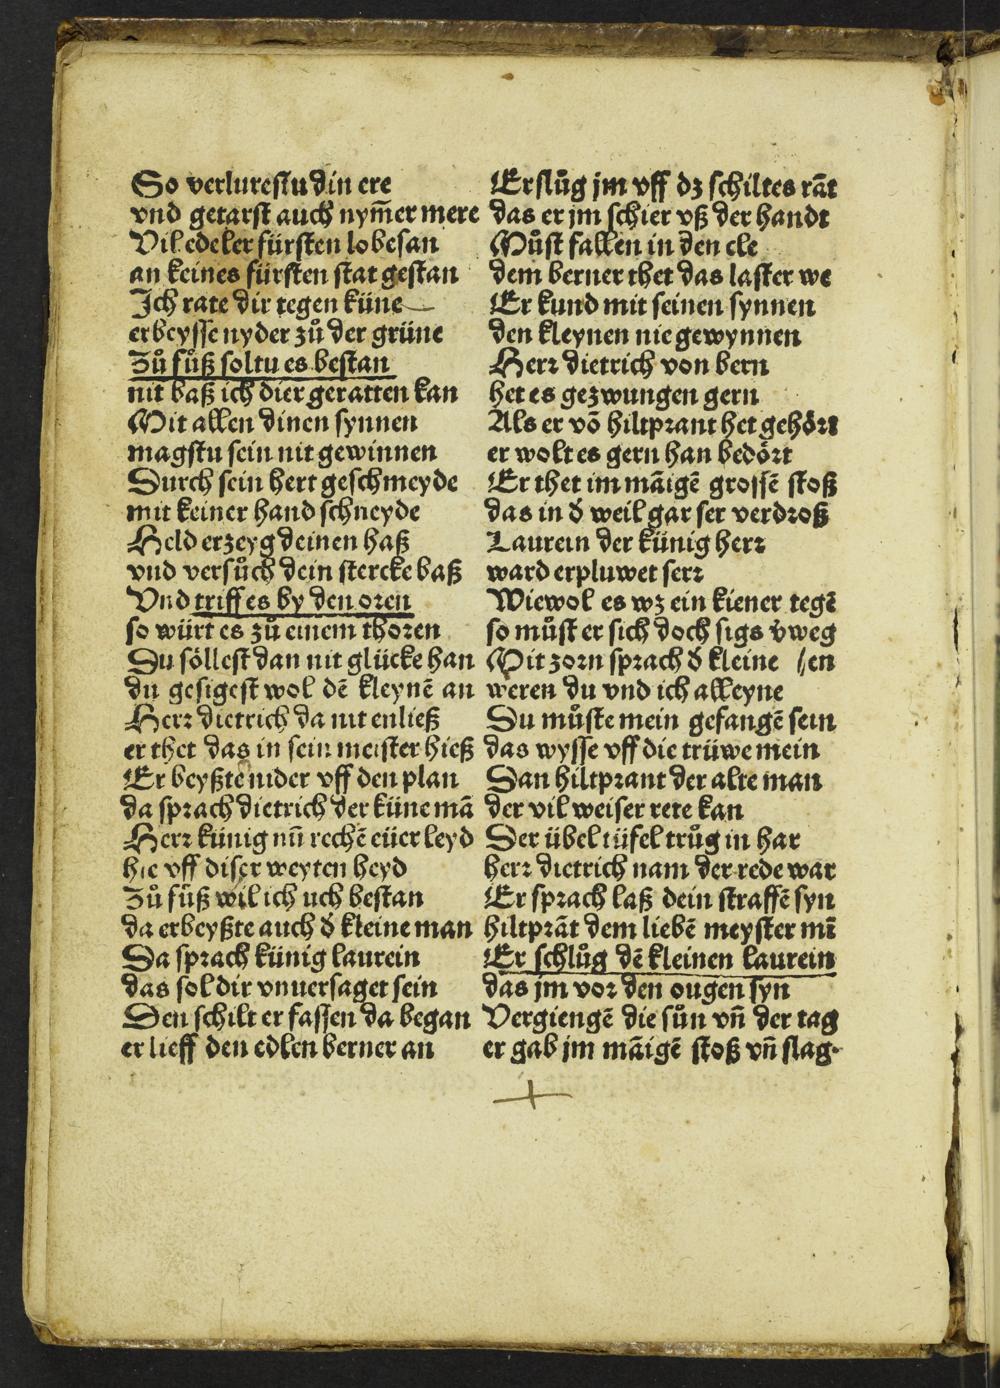 So verlurestu din ere
vnd getarst auch nym̄er mere
Vil edeler fürsten lobesan
an keines fürsten stat gestan
Ich rate dir tegen küne
erbeysse nyder zů der grüne
Zů fůß soltu es bestan
nit baß ich dier geratten kan
Mit allen dinen synnen
magstu sein nit gewinnen
Durch sein hert geschmeyde
mit keiner hand schneyde
Held erzeyg deinen haß
vnd versůch dein stercke baß
Vnd triff es by den oren
so würt es zů einem thoren
Du söllest dan nit glücke han
du gesigest wol dē kleynē an
Herr dietrich da nit enließ
er thet das in sein meister hieß
Er beyßte nider vff den plan
da sprach dietrich der küne mā
Herr künig nū rechē eüer leyd
hie vff diser weyten heyd
Zů fůß wil ich uch bestan
da erbeyßte auch d̄ kleine man
Da sprach künig laurein
das sol dir vnuersaget sein
Den schilt er fassen da began
er lieff den edlen berner an
Er slůg jm vff dz schiltes rāt
das er jm schier vß der handt
Můst fallen in den cle
dem berner thet das laster we
Er kund mit seinen synnen
den kleynen nie gewynnen
Herr dietrich von bern
het es gezwungen gern
Als er vō hiltprant het gehört
er wolt es gern han bedört
Er thet im māigē grossē stoß
das in d̄ weil gar ser verdroß
Laurein der künig herr
ward erpluwet serr
Wiewol es wz ein kiener tegē
so můst er sich doch sigs v̄weg
Mit zorn sprach d̄ kleine (en
weren du vnd ich alleyne
Du můste mein gefangē sein
das wysse vff die trüwe mein
Dan hiltprant der alte man
der vil weiser rete kan
Der übel tüfel trůg in har
herr dietrich nam der rede war
Er sprach laß dein straffē syn
hiltprāt dem liebē meyster mī
Er schlůg dē kleinen laurein
das jm vor den ougen syn
Vergiengē die sůn vn̄ der tag
er gab jm māigē stoß vn̄ slag